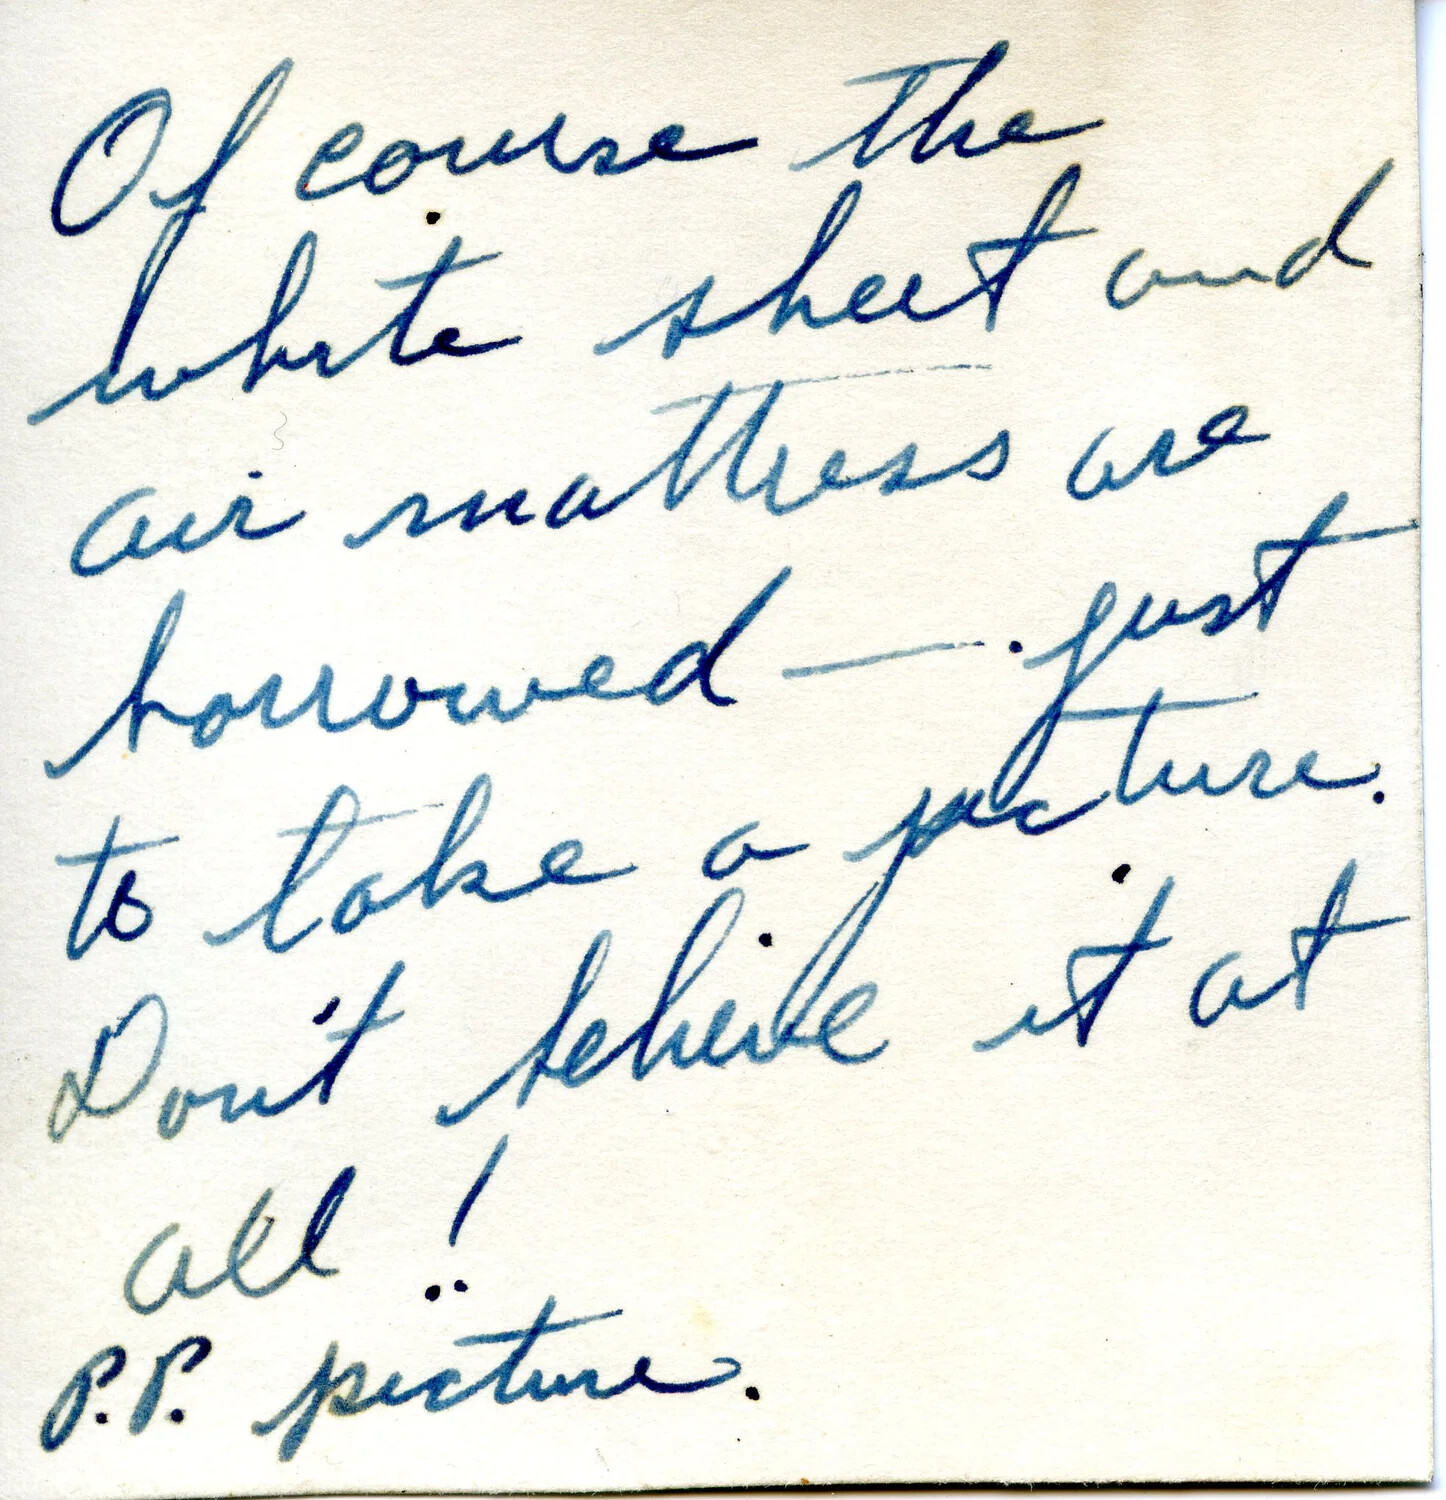 Of course the
white sheet and
air mattress are
borrowed — just
to take a picture.
Don't believe it at
all!
P.P. picture.